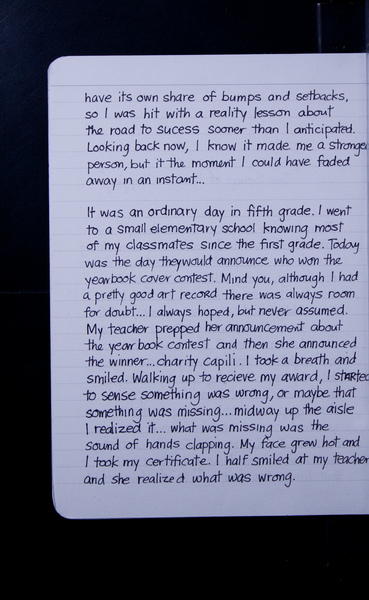 have its own share of bumps and setbacks,
so I was hit with a reality lesson about
the road to sucess sooner than I anticipated.
Looking back now, I know it made me a stronger
person, but it the moment I could have faded
away in an instant...
It was an ordinary day in fifth grade. I went
to a small elementary school knowing most
of my classmates since the first grade. Today
was the day theywould announce who won the
yearbook cover contest. Mind you, although I had
a pretty good art record there was always room
for doubt... I always hoped, but never assumed.
My teacher prepped her announcement about
the year book contest and then she announced
the winner... charity capili. I took a breath and
smiled. Walking up to recieve my award, I started
to sense something was wrong, or maybe that
something was missing... midway up the aisle
I realized it... what was missing was the
sound of hands clapping. My face grew hot and
I took my certificate. I half smiled at my teacher
and she realized what was wrong.